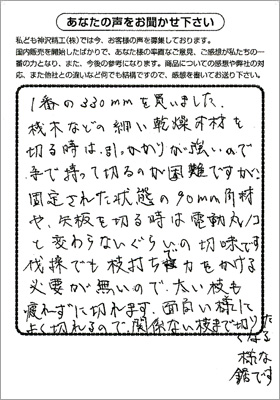 あなたの声をお聞かせ下さい
私ども神沢精工(株)では今、お客様の声を募集しております。
国内販売を開始したばかりで、あなた様の率直なご意見、ご感想が私たちの一
番の力となり、また、今後の参考になります。商品についての感想や弊社の対
応、また他社との違いなど何でも結構ですので、感想を書いてお送り下さい。
1番の330mmを買いました。
桟木などの細い乾燥木材を
切る時は、引っかかりが強いので
手で持って切るのが困難ですが、
固定された状態の90mm角材
や、矢板を切る時は電動丸ノコ
と変わらないぐらいの切味です
伐採でも枝打ちでも力をかける
必要が無いので、太い枝も
疲れずに切れます。面白い様に
よく切れるので、関係ない枝まで切りた
くなる
様な
鋸です